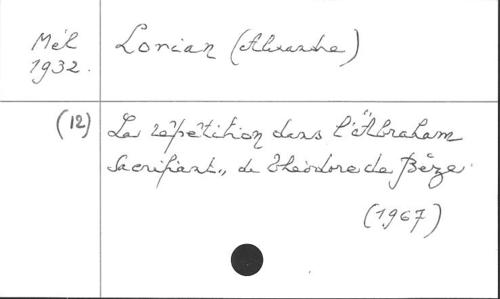 Mél
1932.
Lorian (Alexandre)
(12)
La répétition dans l'"Abraham
Sacrifiant" de Théodore de Bèze.
(1967)